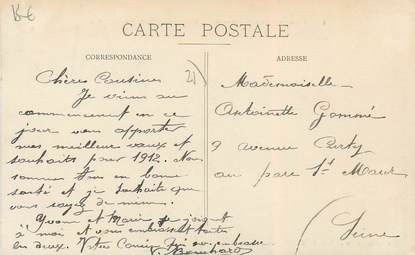 B-E
CARTE POSTALE
CORRESPONDANCE
21)
Chères Cousines
Je viens au
commencement en ce
jour vous apporter
mes meilleur vœux et
souhaits pour 1912. Nous
sommes tous en bonne
santé et je souhaite que
vous soyez de même.
Yvonne et Marie se joignent
à moi et vous embrassent toutes
les deux. Votre Cousin qui vous embrasse
Bouchard
ADRESSE
Mademoiselle
Antoinette Gommé
9 avenue
au parc St Maur
Seine